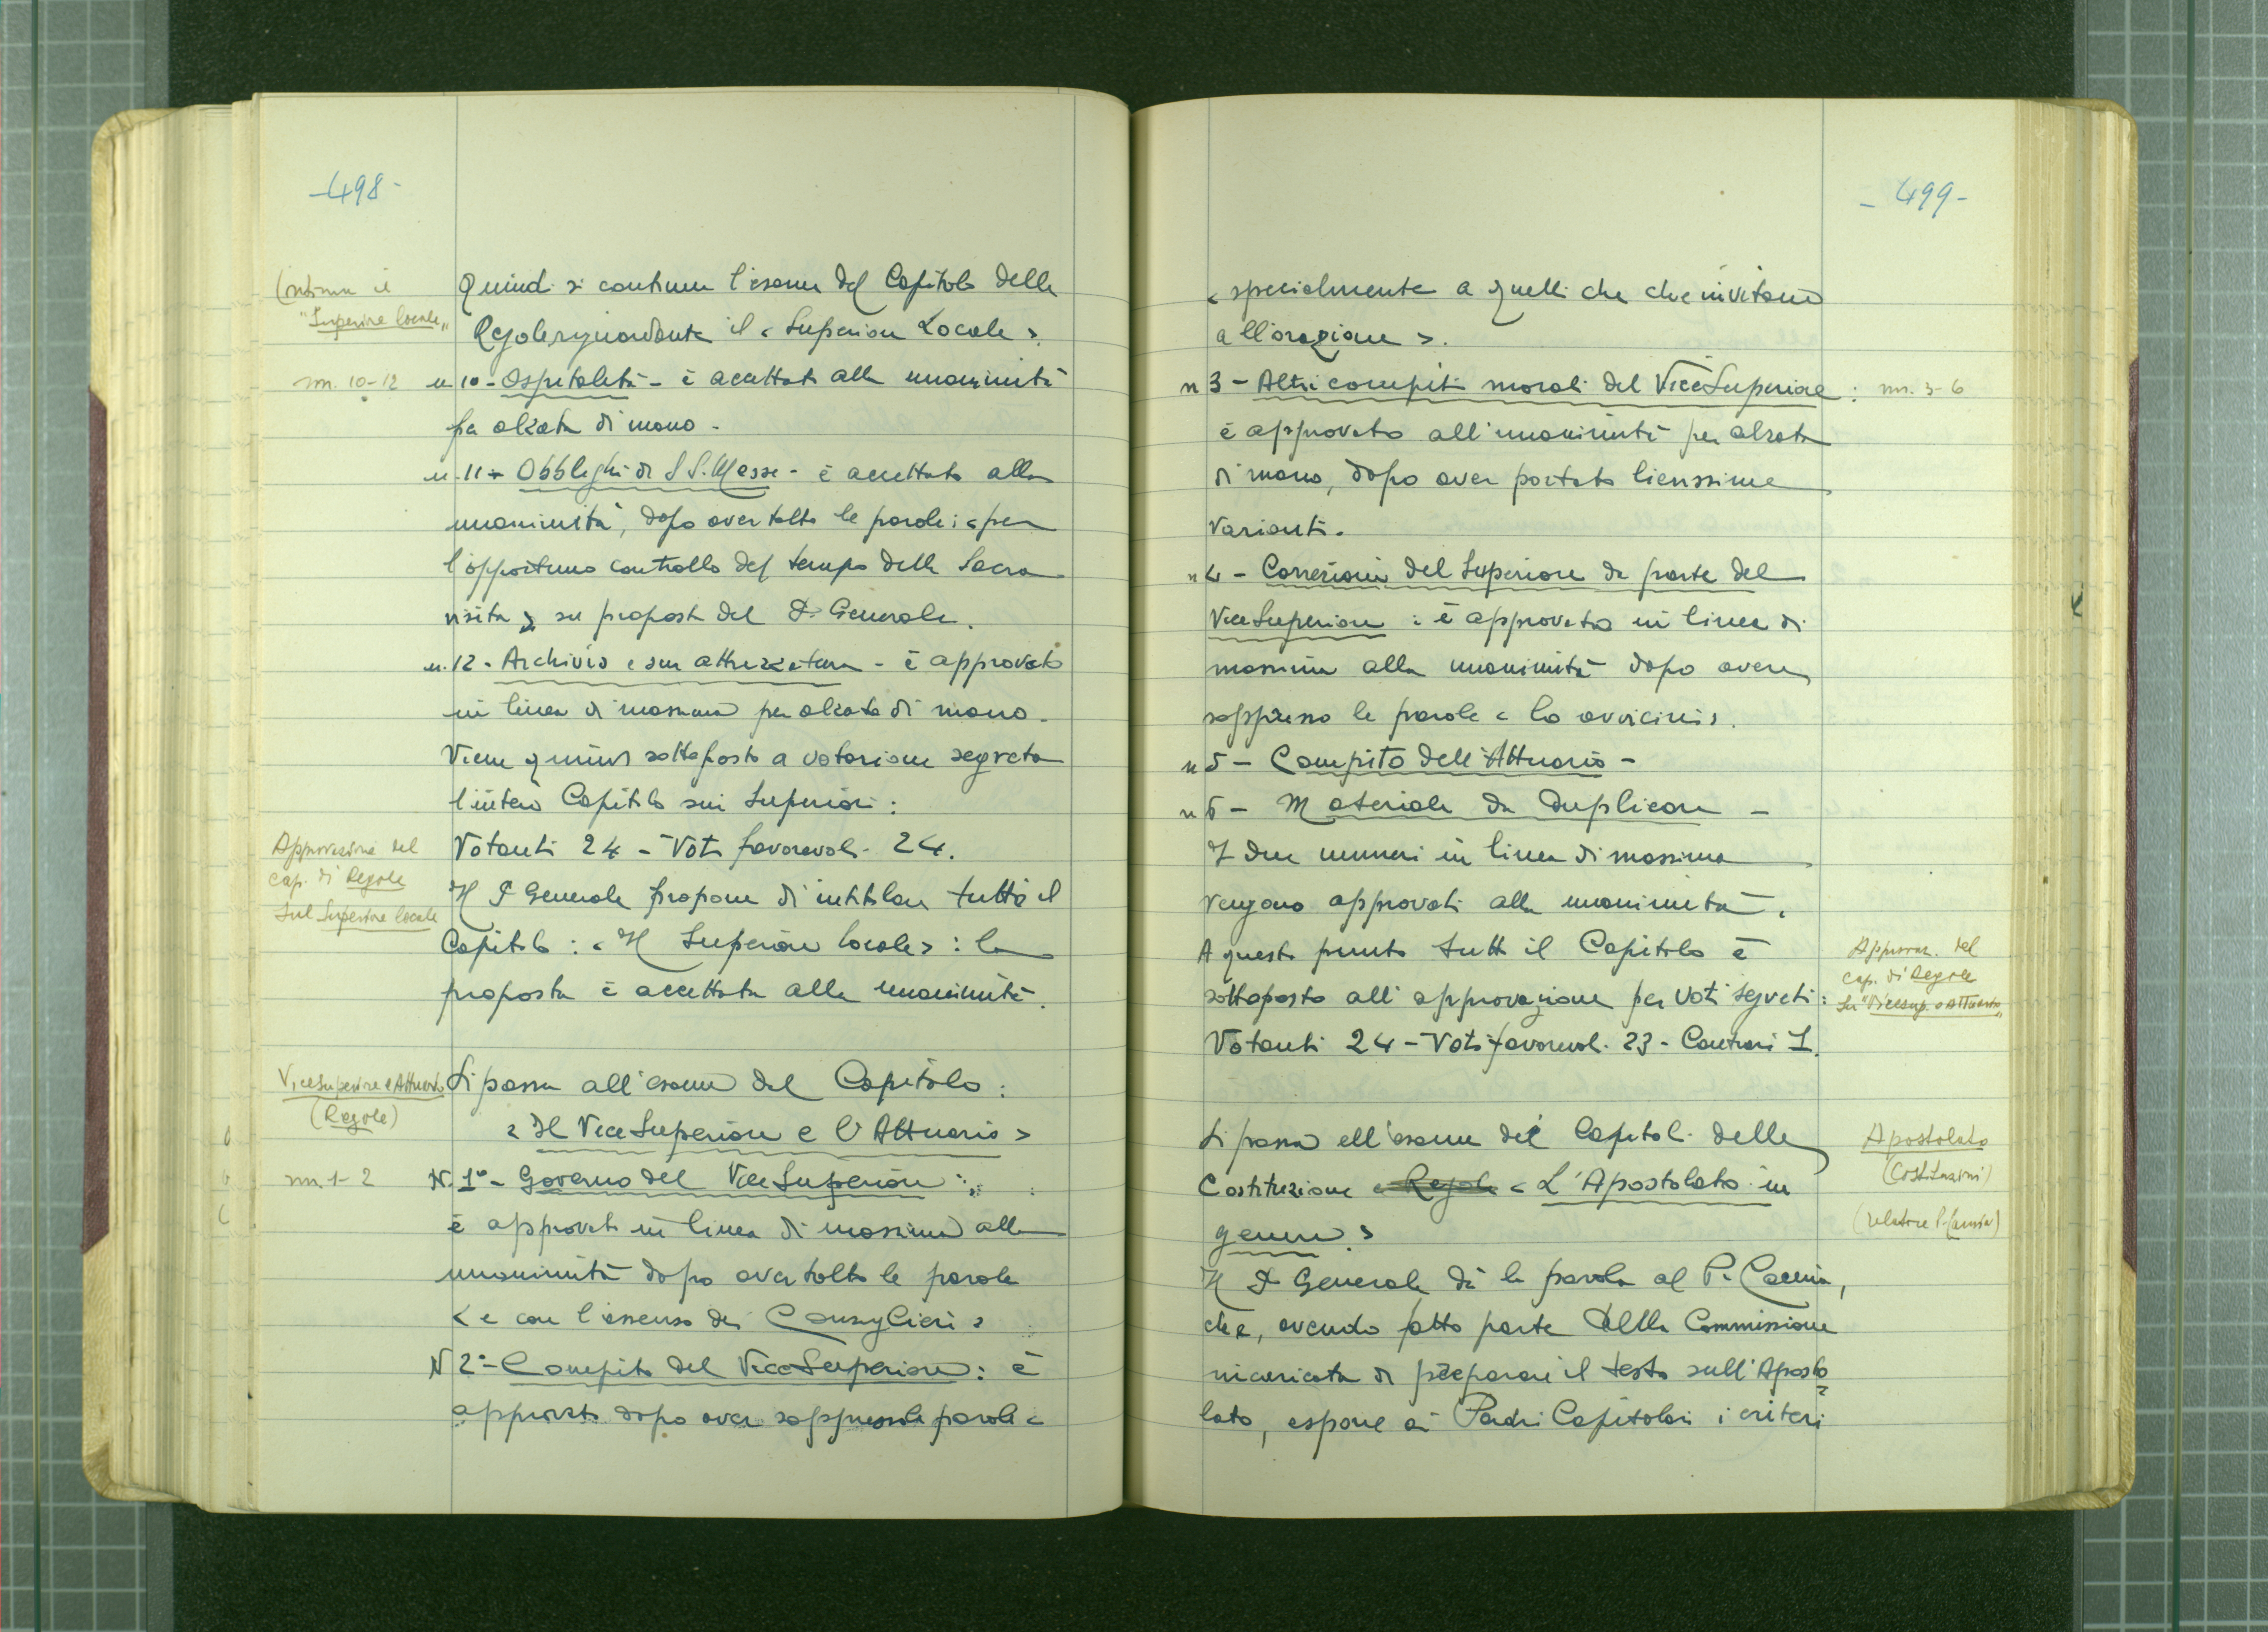 -498-
Continua il
"Superiore locale"
Quindi si continua l'esame del Capitolo delle
Regole riguardante il «Superiore Locale».
nn. 10-12
n 10 - Ospitalità - è accettato alla unanimità
per alzata di mano.
n. 11 - Obblighi di SS. Messe - è accettato alla
unanimità, dopo aver tolto le parole: «per
l'opportuno controllo del tempo della Sacra
visita» su proposta del P. Generale.
n. 12 - Archivio e sua attrezzatura - è approvato
in linea di massima per alzata di mano.
Viene quindi sottoposto a votazione segreta
l'intero Capitolo sui Superiori:
Approvazione del
cap. di Regole
sul Superiore locale
Votanti 24 - Voti favorevoli 24.
Il P. Generale propone di intitolare tutto il
Capitolo: «Il Superiore locale»: la
proposta è accettata alla unanimità.
ViceSuperiore e Attuario
(Regole)
Si passa all'esame del Capitolo:
«Il ViceSuperiore e l'Attuario»
nn. 1-2
N. 1° - Governo del ViceSuperiore:
è approvato in linea di massima alla
unanimità dopo aver tolto le parole
«e con l'assenso dei Consiglieri»
N 2° - Compito del ViceSuperiore: è
approvato dopo aver soppresso le parole «
-499-
«specialmente a quelli che che invitano
all'orazione».
n 3 - Altri compiti morali del ViceSuperiore:
nn. 3-6
è approvato all'unanimità per alzata
di mano, dopo aver portato lievissime
varianti.
n 4 - Correzioni del Superiore da parte del
ViceSuperiore: è approvato in linea di
massima alla unanimità dopo avere
soppresso le parole «lo avvicini».
n 5 - Compito dell'Attuario -
n 6 - Materiale da duplicare -
I due numeri in linea di massima
vengono approvati alla unanimità.
A questo punto tutto il Capitolo è
sottoposto all'approvazione per voti segreti:
Approvaz. del
cap. di Regole
su "Vicesup. e Attuario"
Votanti 24 - Voti favorevoli 23 - Contrari 1.
Si passa all'esame dei Capitoli delle
Costituzione e Regole «L'Apostolato in
genere»
Apostolato
(Costituzioni)
(relatore P. Caccia)
Il P. Generale dà la parola al P. Caccia,
che, avendo fatto parte della Commissione
incaricata di preparare il testo sull'Aposto
lato, espone ai Padri Capitolari i criteri